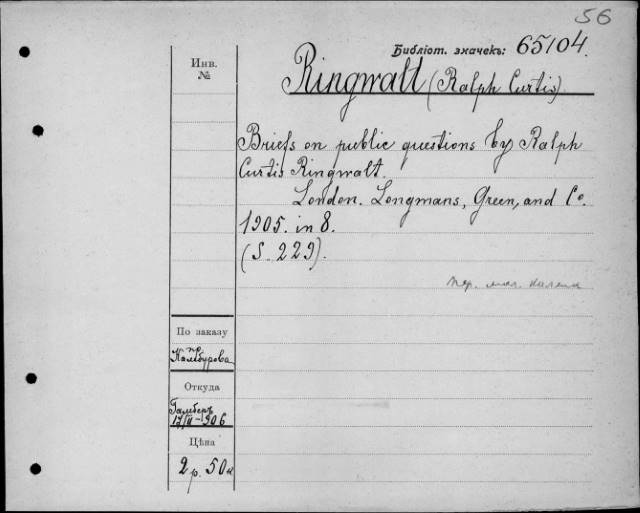 56
Библіот. значекъ: 65104.
Инв.
№
Ringwalt (Ralph Curtis)
Briefs on public questions by Ralph
Curtis Ringwalt.
London. Longmans, Green, and Co.
1905. in 8.
(S. 229).
По заказу
пр.
Камбурова
Откуда
Гамберъ
-906
Цѣна
2 р. 50 к